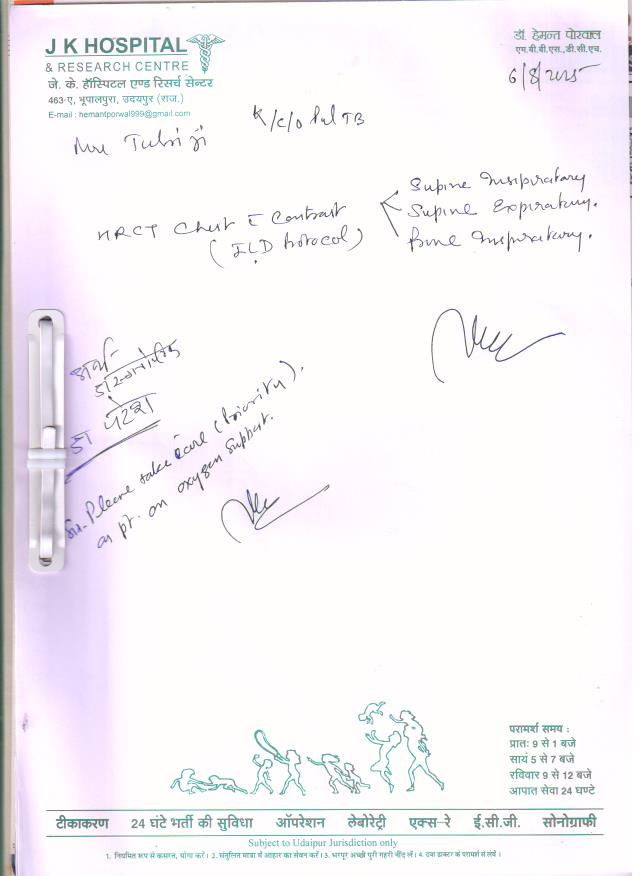 J K HOSPITAL
& RESEARCH CENTRE
जे. के. हॉस्पिटल एण्ड रिसर्च सेन्टर
463-ए, भूपालपुरा, उदयपुर (राज.)
E-mail : hemantporwal999@gmail.com
डॉ. हेमन्त पोरवाल
एम.बी.बी.एस., डी.सी.एच.
6/8/2025
K/C/O Pul TB
Tulsi ji
HRCT Chest c̄ Contrast
(ILD Protocol)
Supine Inspiratory
Supine Expiratory.
Prone Inspiratory.
अर्थ
डायग्नोस्टिक
डा
Sir. Please take care (Priority).
as pt. on oxygen support.
परामर्श समय :
प्रातः 9 से 1 बजे
सायं 5 से 7 बजे
रविवार 9 से 12 बजे
आपात सेवा 24 घण्टे
टीकाकरण 24 घंटे भर्ती की सुविधा ऑपरेशन लेबोरेट्री एक्स-रे ई.सी.जी. सोनोग्राफी
Subject to Udaipur Jurisdiction only
1. नियमित रूप से कसरत, योगा करें। 2. संतुलित मात्रा में आहार का सेवन करें। 3. भरपूर अच्छी पूरी गहरी नींद लें। 4. दवा डाक्टर के परामर्श से लेवें।